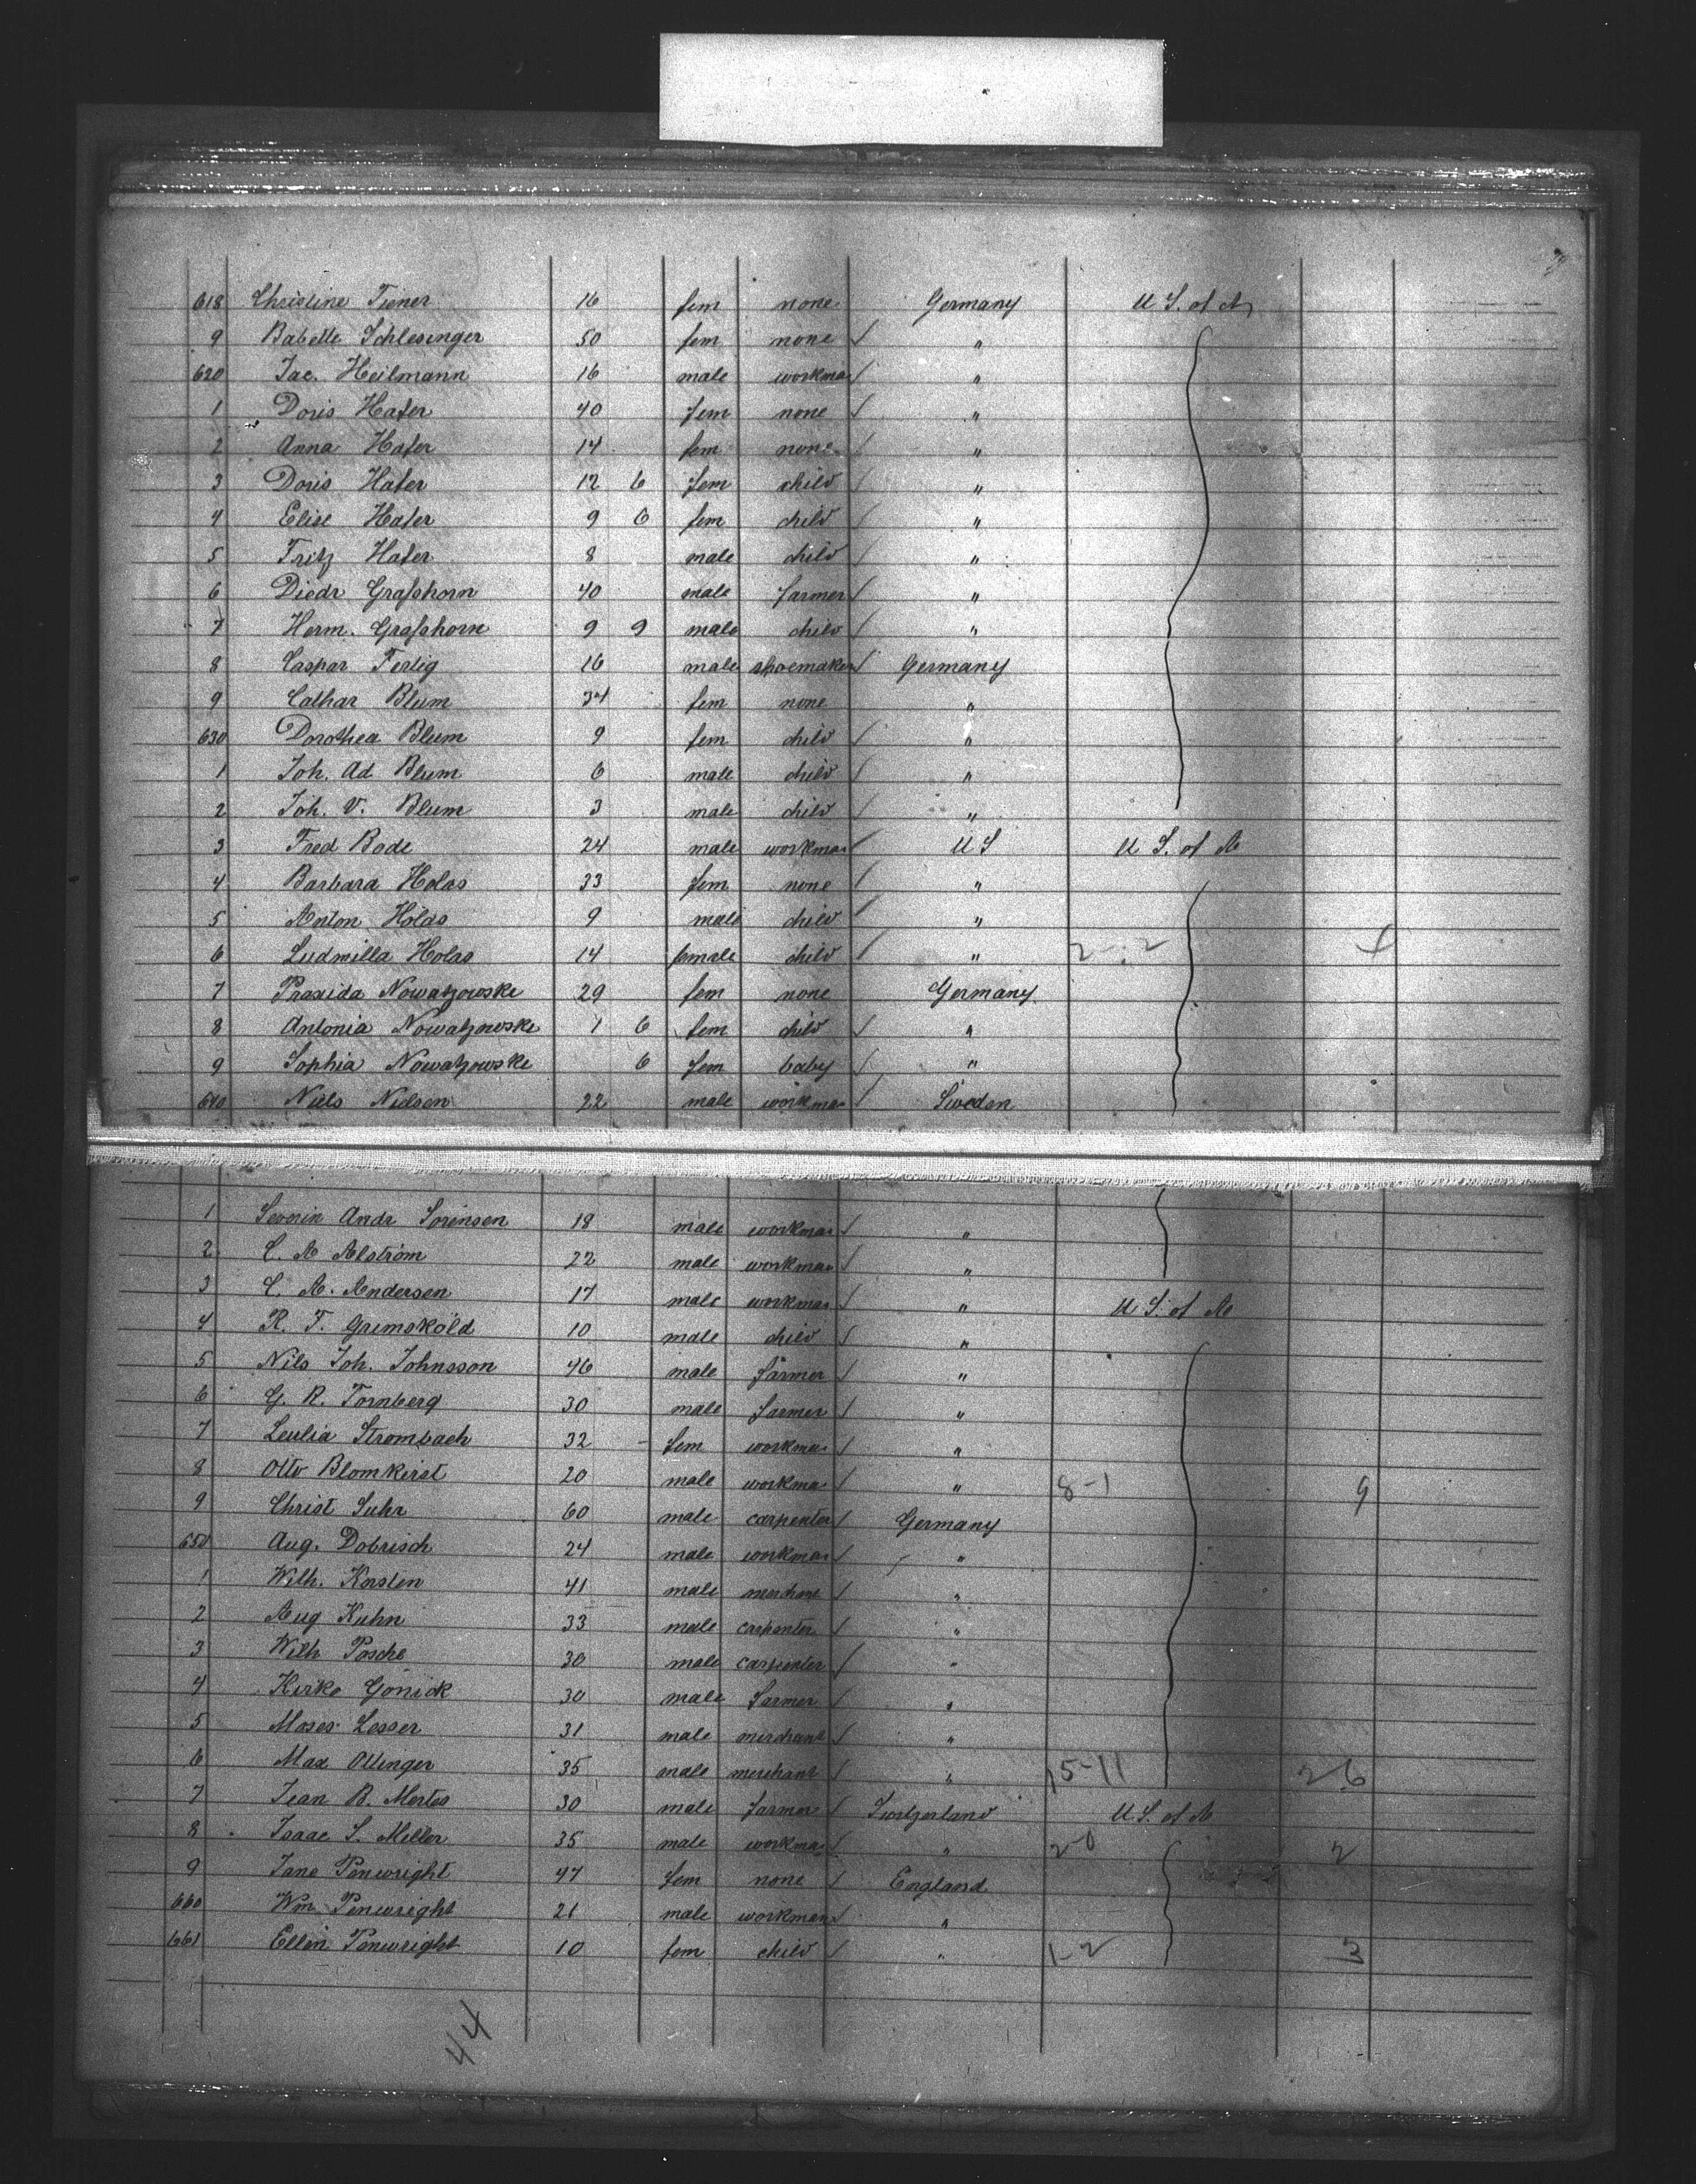 618 Christine Tiener 16 fem none Germany U S. of A
9 Babette Schlesinger 50 fem none / "
620 Jac. Heilmann 16 male workman / "
1 Doris Hafer 40 fem none / "
2 Anna Hafer 14 fem none / "
3 Doris Hafer 12 6 fem child / "
4 Elise Hafer 9 6 fem child / "
5 Fritz Hafer 8 male child / "
6 Diedr Graſshorn 40 male farmer / "
7 Herm. Graſshorn 9 9 male child / "
8 Caspar Fertig 16 male shoemaker / Germany
9 Cathar Blum 34 fem none "
630 Dorothea Blum 9 fem child / "
1 Joh. Ad Blum 6 male child / "
2 Joh. V. Blum 3 male child / "
3 Fred Bode 24 male workman / U S U S. of A
4 Barbara Holas 33 fem none / "
5 Anton Holas 9 male child / "
6 Ludmilla Holas 14 female child / " 2-2
7 Praxida Nowatzowske 29 fem none Germany
8 Antonia Nowatzowske 1 6 fem child / "
9 Sophia Nowatzowske 6 fem baby / "
640 Niels Nielsen 22 male workman / Sweden
1 Severin Andr Sorensen 18 male workman / "
2 C. A Alström 22 male workman / "
3 C. A. Andersen 17 male workman / " U S. of A
4 R. T. Grimsköld 10 male child / "
5 Nils Joh. Johnsson 46 male farmer / "
6 G. R. Tornberg 30 male farmer / "
7 Leulia Strombach 32 fem workman / "
8 Otto Blomkirst 20 male workman / " 8-1 9
9 Christ Suhr 60 male carpenter / Germany
650 Aug. Dobrisch 24 male workman / "
1 Wilh. Korsten 41 male merchant / "
2 Aug Kuhn 33 male carpenter / "
3 Wilh Posche 30 male carpenter / "
4 Kirko Gonick 30 male farmer / "
5 Moses Lesser 31 male merchant / "
6 Max Ollinger 35 male merchant / " 15-11 26
7 Jean B. Mertes 30 male farmer / Switzerland U S. of A
8 Isaac S. Miller 35 male workman / " 2-0 2
9 Jane Penwright 47 fem none / England
660 Wm Penwright 21 male workman / "
661 Ellen Penwright 10 fem child / " 1-2 3
44